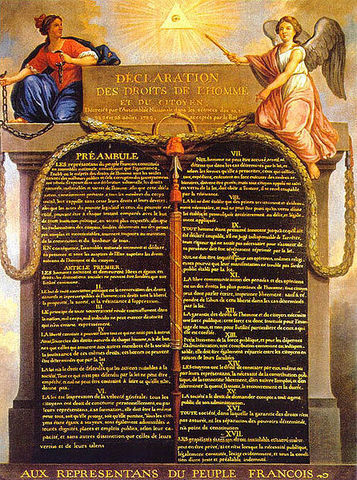 DÉCLARATION
DES DROITS DE L'HOMME
ET DU CITOYEN
Décrétés par l'Assemblée Nationale dans les séances des 20, 21
23, 24 et 26 août 1789, acceptés par le Roi
PRÉAMBULE
LES représentans du peuple François constitués
en assemblée nationale, considérant que l'ignorance
l'oubli ou le mépris des droits de l'homme sont les seules
causes des malheurs publics et de la corruption des gouvernemens
ont résolu d'exposer dans une déclaration solemnelle les droits
naturels, inaliénables et sacrés de l'homme; afin que cette déclaration
constamment présente à tous les membres du corps
social, leur rappelle sans cesse leurs droits et leurs devoirs;
afin que les actes du pouvoir législatif et ceux du pouvoir
exécutif, pouvant être à chaque instant comparés avec le but
de toute institution politique, en soient plus respectés; afin que
les réclamations des citoyens, fondées désormais sur des principes
simples et incontestables, tournent toujours au maintien
de la constitution et du bonheur de tous.
EN conséquence, l'assemblée nationale reconnoit et déclare
en présence et sous les auspices de l'Etre suprême les droits
suivans de l'homme et du citoyen.
ARTICLE PREMIER.
LES hommes naissent et demeurent libres et égaux en
droits; les distinctions sociales ne peuvent être fondées que sur
l'utilité commune.
II.
LE but de toute association politique est la conservation des droits
naturels et imprescriptibles de l'homme; ces droits sont la liberté,
la propriété, la sureté, et la résistance à l'oppression.
III.
LE principe de toute souveraineté réside essentiellement dans
la nation, nul corps, nul individu ne peut exercer d'autorité
qui n'en émane expressément.
IV.
LA liberté consiste à pouvoir faire tout ce qui ne nuit pas à autrui
Ainsi, l'exercice des droits naturels de chaque homme, n'a de bornes
que celles qui assurent aux autres membres de la société
la jouissance de ces mêmes droits; ces bornes ne peuvent
être déterminées que par la loi
V.
LA loi n'a le droit de défendre que les actions nuisibles à la
société. Tout ce qui n'est pas défendu par la loi ne peut être
empêché, et nul ne peut être contraint à faire ce qu'elle n'ordonne
pas.
VI.
LA loi est l'expression de la volonté générale; tous les
citoyens ont droit de concourir personnellement, ou par
leurs représentans, à sa formation; elle doit être la même
pour tous, soit qu'elle protege, soit qu'elle punisse. Tous les citoyens
étant égaux à ses yeux, sont également admissibles à
toutes dignités, places et emplois publics, selon leur capacité,
et sans autres distinctions que celles de leurs
vertus et de leurs talens.
VII.
NUL homme ne peut être accusé, arrêté, ni
détenu que dans les cas déterminés par la loi, et
selon les formes qu'elle a prescrites, ceux qui sollicitent,
expédient, exécutent ou font exécuter des ordres arbitraires,
doivent être punis; mais tout citoyen appelé ou saisi
en vertu de la loi, doit obéir à l'instant, il se rend coupable
par la résistance.
VIII.
LA loi ne doit établir que des peines strictement et évidemment
nécessaires, et nul ne peut être puni qu'en vertu d'une
loi établie et promulguée antérieurement au délit, et légalement
appliquée.
IX.
TOUT homme étant présumé innocent jusqu'à ce qu'il ait
été déclaré coupable, s'il est jugé indispensable de l'arrêter,
toute rigueur qui ne seroit pas nécessaire pour s'assurer de
sa personne doit être sévèrement réprimée par la loi.
X.
NUL ne doit être inquiété pour ses opinions, mêmes religieuses
pourvu que leur manifestation ne trouble pas l'ordre
public établi par la loi.
XI.
LA libre communication des pensées et des opinions
est un des droits les plus précieux de l'homme; tout citoyen
peut donc parler, écrire, imprimer librement, sauf à répondre
de l'abus de cette liberté dans les cas déterminés
par la loi.
XII.
LA garantie des droits de l'homme et du citoyen nécessite
une force publique; cette force est donc instituée pour l'avantage
de tous, et non pour l'utilité particuliere de ceux à qui
elle est confiée.
XIII.
POUR l'entretien de la force publique, et pour les dépenses
d'administration, une contribution commune est indispensable;
elle doit être également répartie entre les citoyens en
raison de leurs facultés.
XIV.
LES citoyens ont le droit de constater par eux mêmes ou
par leurs représentans, la nécessité de la contribution publique,
de la consentir librement, d'en suivre l'emploi, et d'en
déterminer la quotité, l'assiette, le recouvrement et la durée.
XV.
LA société a le droit de demander compte à tout agent
public de son administration.
XVI.
TOUTE société, dans laquelle la garantie des droits n'est
pas assurée, ni la séparation des pouvoirs déterminée,
n'a point de constitution.
XVII.
LES propriétés étant un droit inviolable et sacré, nul ne
peut en être privé, si ce n'est lorsque la nécessité publique,
légalement constatée, l'exige évidemment, et sous la condition
d'une juste et préalable indemnité.
AUX REPRESENTANS DU PEUPLE FRANCOIS